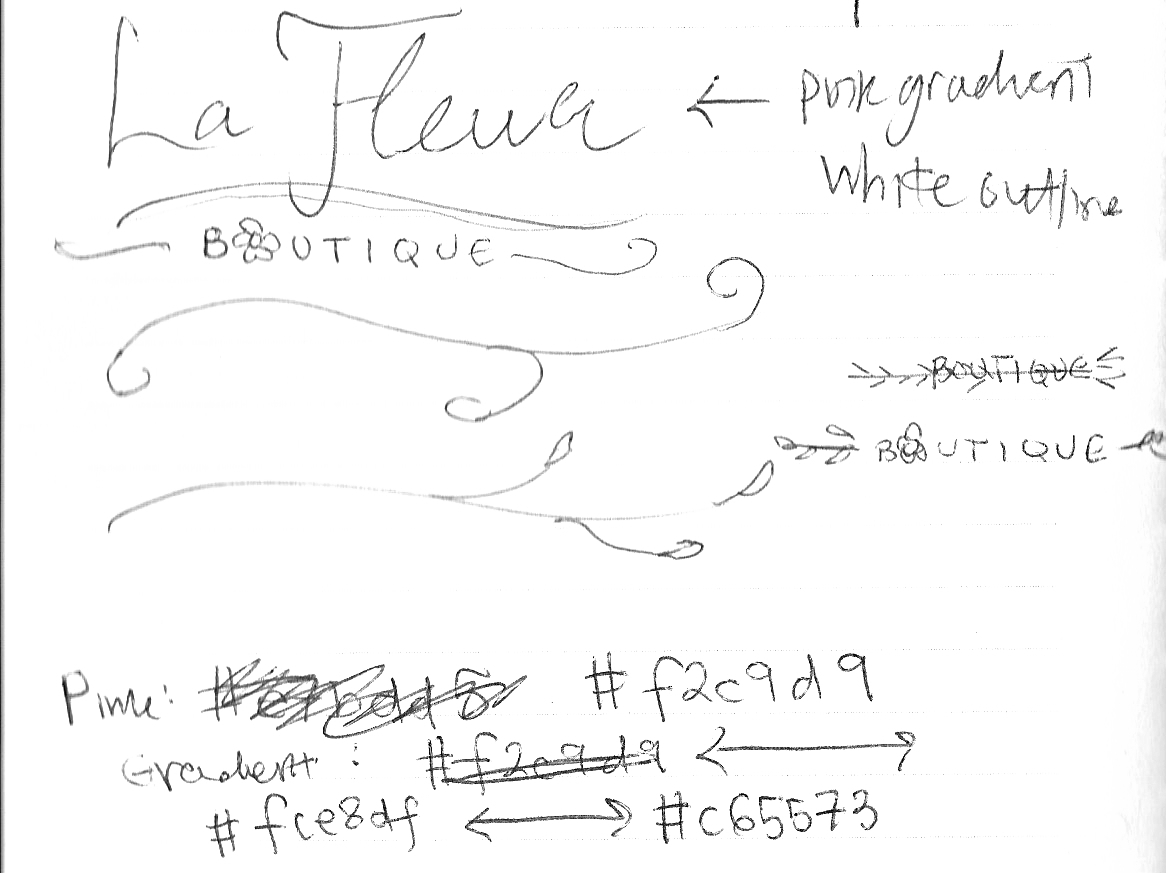 La Fleur
← pink gradient
white outline
BOUTIQUE
BOUTIQUE
BOUTIQUE
Pink: #f2c9d9
Gradient: #f2c9d9 ←→
#fce8df ←→ #c65573